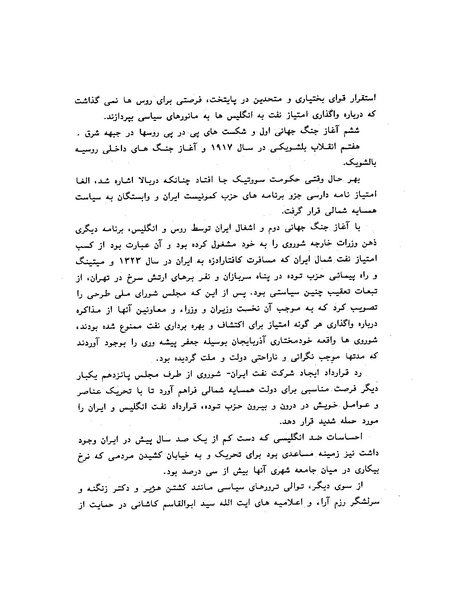 استقرار قوای بختیاری و متحدین در پایتخت، فرصتی برای روس ها نمی گذاشت
که درباره واگذاری امتیاز نفت به انگلیس ها به مانورهای سیاسی بپردازند.
ششم آغاز جنگ جهانی اول و شکست های پی در پی روسها در جبهه شرق .
هفتم انقلاب بلشویکی در سال ۱۹۱۷ و آغاز جنگ های داخلی روسیه
بالشویک.
بهر حال وقتی حکومت سوروتیک جا افتاد چنانکه دربالا اشاره شد، الغا
امتیاز نامه دارسی جزو برنامه های حزب کمونیست ایران و وابستگان به سیاست
همسایه شمالی قرار گرفت.
با آغاز جنگ جهانی دوم و اشغال ایران توسط روس و انگلیس، برنامه دیگری
ذهن وزرات خارجه شوروی را به خود مشغول کرده بود و آن عبارت بود از کسب
امتیاز نفت شمال ایران که مسافرت کافتارادزه به ایران در سال ۱۳۲۳ و میتینگ
و راه پیمائی حزب توده در پناه سربازان و نفر برهای ارتش سرخ در تهران، از
تبعات تعقیب چنین سیاستی بود. پس از این که مجلس شورای ملی طرحی را
تصویب کرد که به موجب آن نخست وزیران و وزراء و معاونین آنها از مذاکره
درباره واگذاری هر گونه امتیاز برای اکتشاف و بهره برداری نفت ممنوع شده بودند،
شوروی ها واقعه خودمختاری آذربایجان بوسیله جعفر پیشه وری را بوجود آوردند
که مدتها موجب نگرانی و ناراحتی دولت و ملت گردیده بود.
رد قرارداد ایجاد شرکت نفت ایران- شوروی از طرف مجلس پانزدهم یکبار
دیگر فرصت مناسبی برای دولت همسایه شمالی فراهم آورد تا با تحریک عناصر
و عوامل خویش در درون و بیرون حزب توده، قرارداد نفت انگلیس و ایران را
مورد حمله شدید قرار دهد.
احساسات ضد انگلیسی که دست کم از یک صد سال پیش در ایران وجود
داشت نیز زمینه مساعدی بود برای تحریک و به خیابان کشیدن مردمی که نرخ
بیکاری در میان جامعه شهری آنها بیش از سی درصد بود.
از سوی دیگر، توالی ترورهای سیاسی مانند کشتن هژیر و دکتر زنگنه و
سرلشگر رزم آراء و اعلامیه های ایت الله سید ابوالقاسم کاشانی در حمایت از